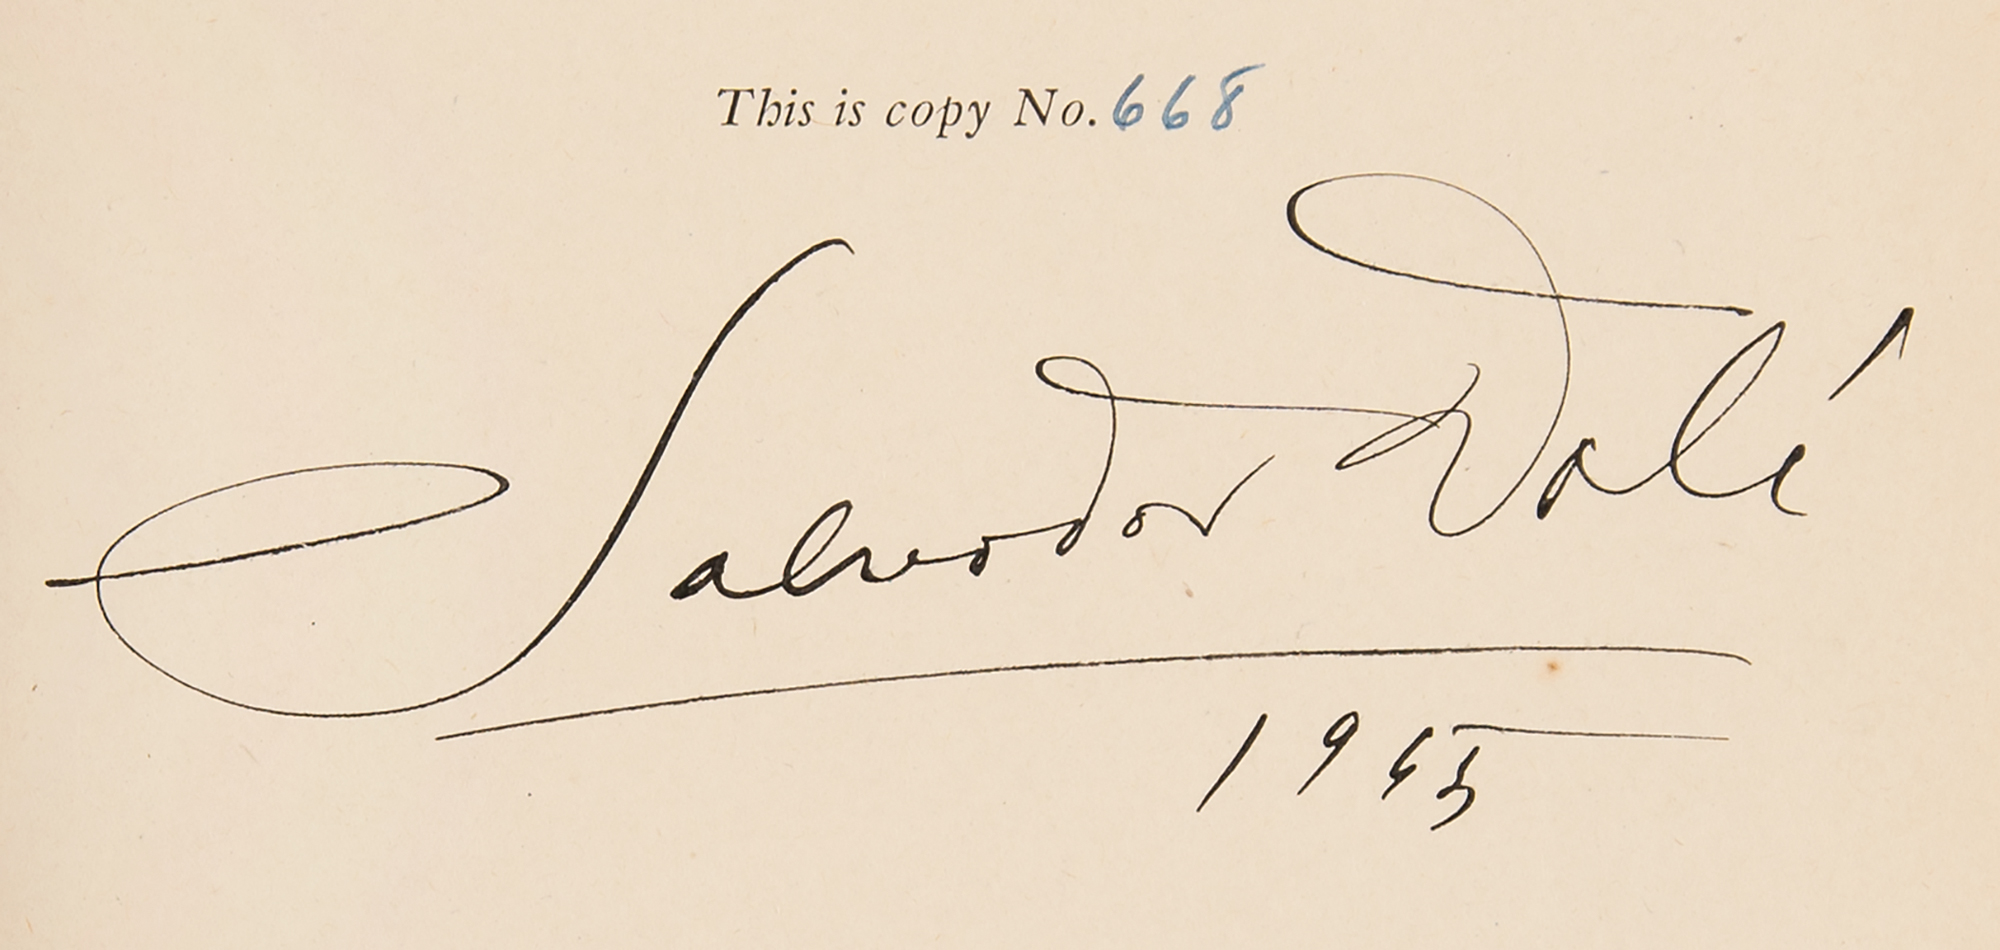 This is copy No. 668
Salvador Dalí
1945